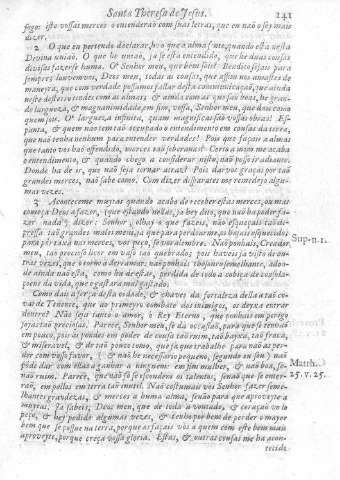 Santa Thereſa de Jeſus. 241
ſigo: iſto voſſas mercès o entenderaõ com ſuas letras, que eu naõ o ſey mais
dizer.
2 O que eu pertendo declarar, he o que a alma ſente, quando eſtà neſta
Divina uniaõ. O que he uniaõ, ja ſe eſtà entendido, que he duas couſas
diviſas fazerſe huma. ò Senhor meu, que bom ſois! Bendito ſejais para
ſempre louvemvos, Deos meu, todas as couſas, que aſſim nos amaſtes de
maneyra, que com verdade poſſamos fallar deſta communicaçaõ, que ainda
neſte deſterro tendes com as almas; & ainda com as que ſaõ boas, he gran-
de largueza, & magnanimidade, em fim, voſſa, Senhor meu, que dais como
quem ſois. O largueza infinita, quam magnificas ſaõ voſſas obras! Eſ-
panta, a quem naõ tem taõ occupado o entendimento em couſas da terra,
que naõ tenha nenhum para entender verdades! Pois que façais a almas
que tanto vos haõ offendido, mercès taõ ſoberanas! Certo a mim me acaba
o entendimento, & quando chego a conſiderar niſto, naõ poſſo ir adiante.
Donde ha de ir, que naõ ſeja tornar atraz? Pois darvos graças por taõ
grandes mercès, naõ ſabe como. Com dizer diſparates me remedeyo algu-
mas vezes.
3 Aconteceme muytas quando acabo de receber eſtas mercès, ou mas
começa Deos a fazer, (que eſtando nellas, ja hey dito, que naõ ha poder fa-
zer nada) dizer: Senhor, olhay o que fazeis, naõ eſqueçais taõ de-
preſſa taõ grandes males meus, ja que para perdoarme, os hajais eſquecido;
para pôr taxa nas mercès, vos peço, ſe vos alembre. Naõ ponhais, Creador
meu, taõ precioſo licor em vaſo taõ quebrado; pois haveis ja viſto de ou-
tras vezes, que o torno a derramar; naõ ponhais theſouro ſemelhante, adon-
de ainda naõ eſtà, como ha de eſtar, perdida de todo a cobiça de conſola-
çoens da vida, que o gaſtarà mal gaſtado.
Como dais a força deſta cidade, & chaves da fortaleza della a taõ co-
varde Tenente, que ao primeyro combate dos inimigos, os deyxa entrar
dentro? Naõ ſeja tanto o amor, ò Rey Eterno, que ponhais em perigo
joyas taõ precioſas. Parece, Senhor meu, ſe dà occaſiaõ, para que ſe tenhaõ
em pouco, pois as pondes em poder de couſa taõ ruim, taõ bayxa, taõ fraca,
& miſeravel, & de taõ pouco tomo,
Sup. n. 1.
Matth.
25. v. 25.
nhece ruim. Parece, que naõ ſó ſe eſcondem os talentos, ſenaõ que ſe enter-
raõ, em pollos em terra taõ ruim. Naõ coſtumais vòs Senhor fazer ſeme-
lhantes grandezas, & mercès a huma alma, ſenaõ para que aproveyte a
muytas. Ja ſabeis, Deos meu, que de toda a vontade, & coraçaõ vos lo
peço, & hey pedido algumas vezes, & tenho por bem de perder o mayor
bem que ſe poſſue na terra, porque as façais vòs a quem com eſte bem mais
aproveyte, porque creça voſſa gloria. Eſtas, & outras couſas me ha acon-
tecido